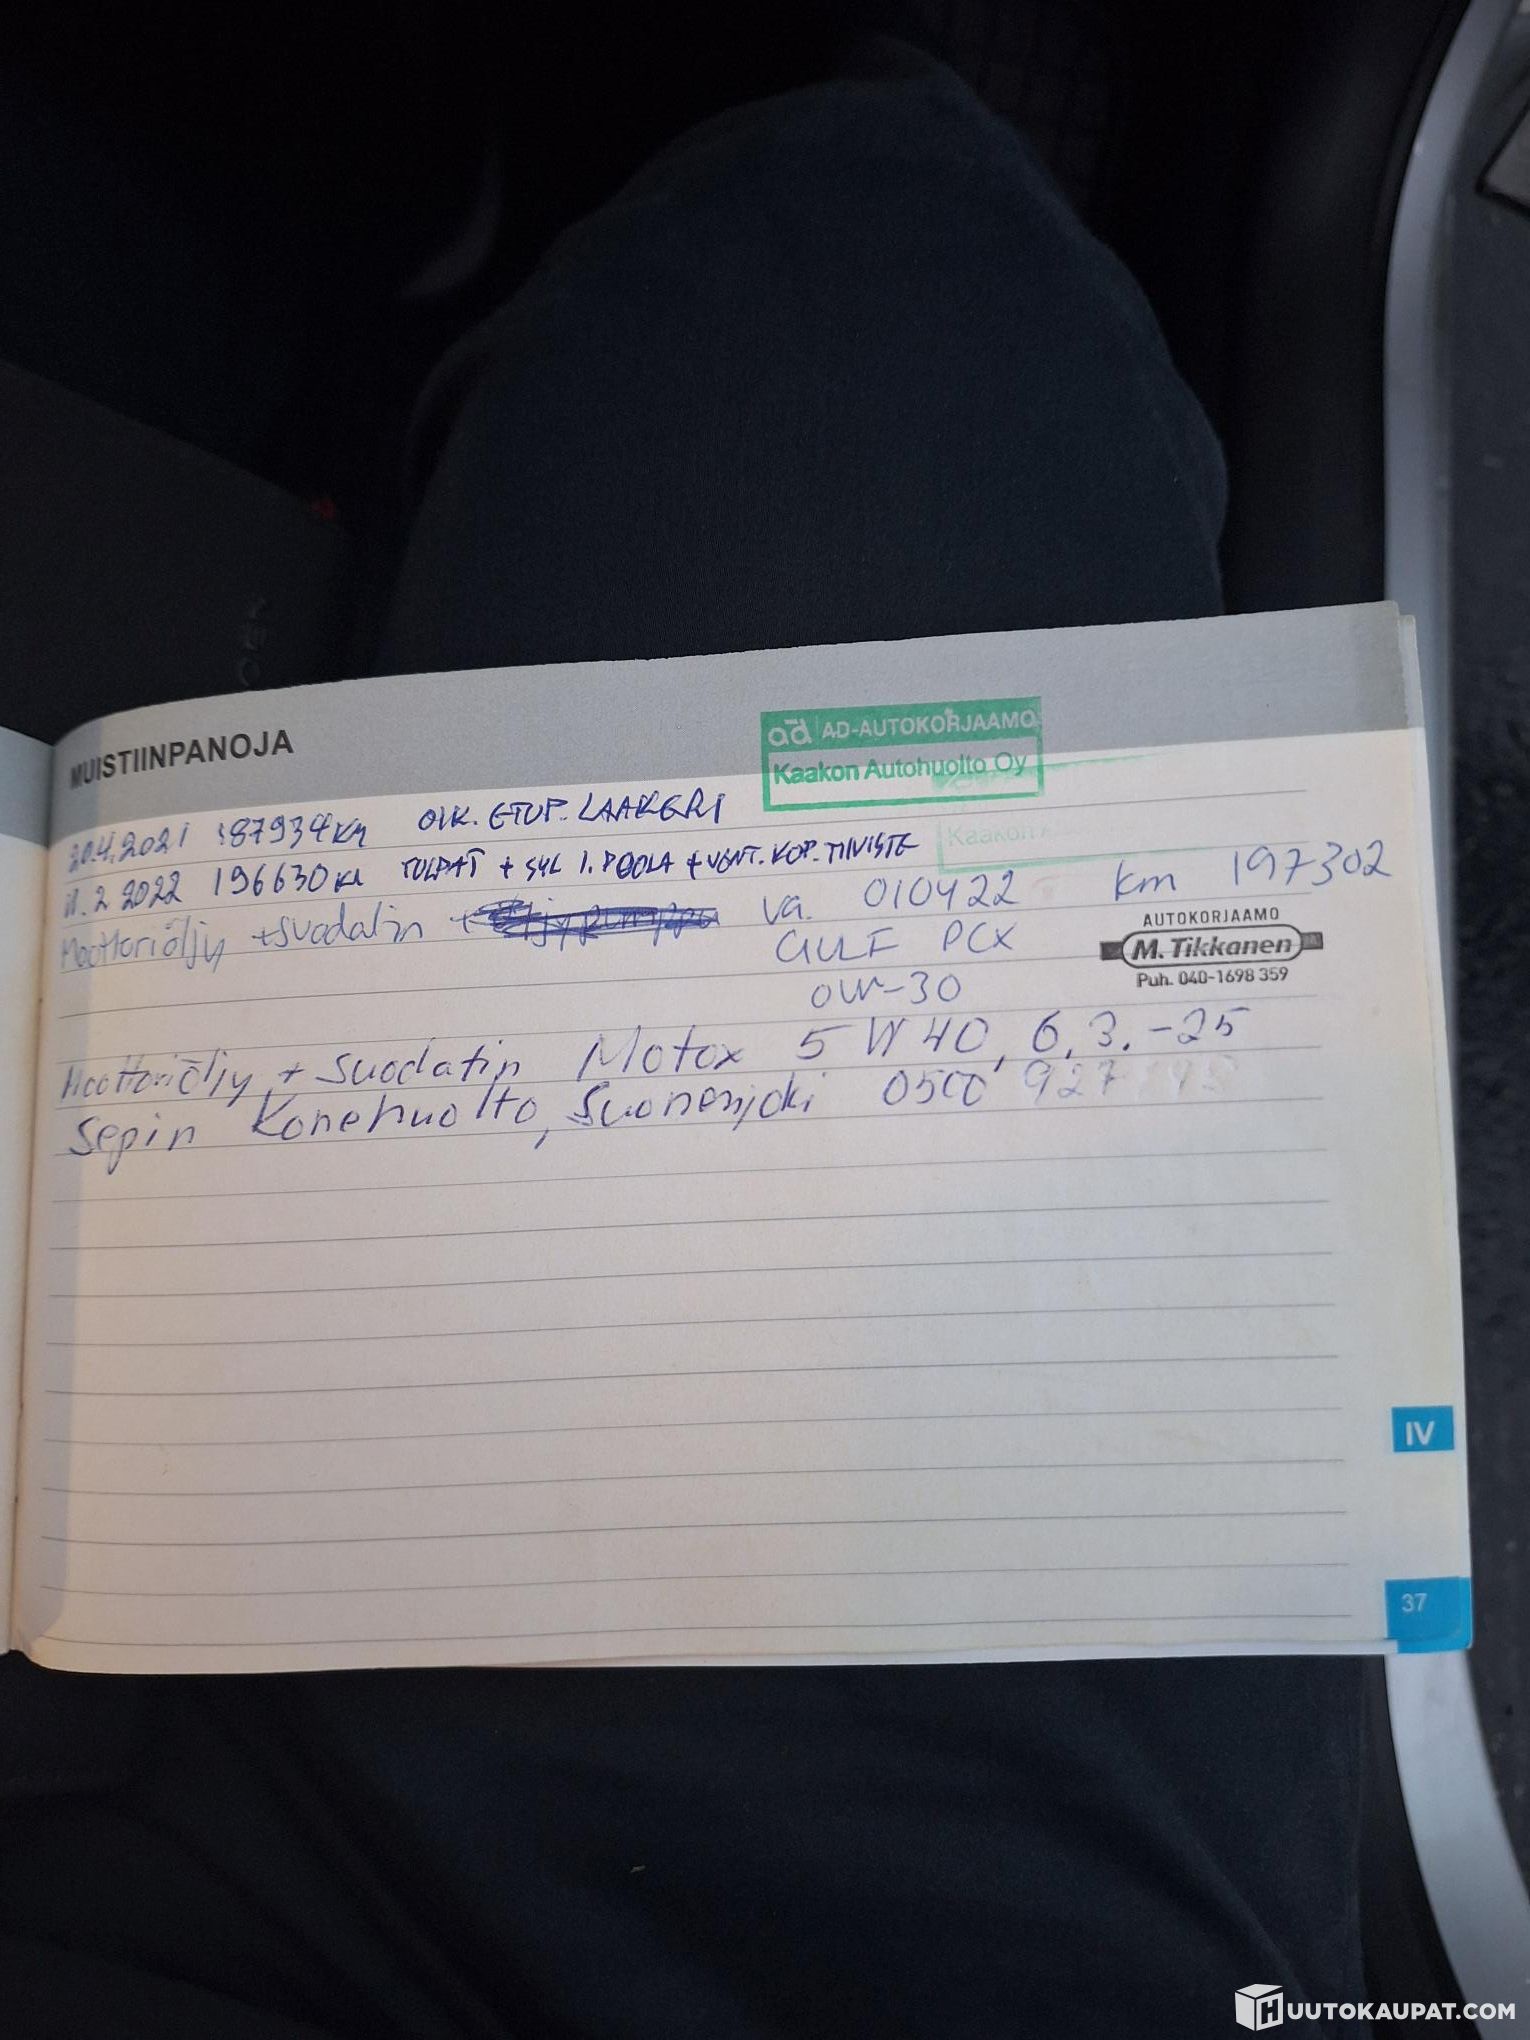 MUISTIINPANOJA
ad AD-AUTOKORJAAMO
Kaakon Autohuolto Oy
20.4.2021 187934KM OIK. ETUP. LAAKERI
Kaakon
11.2 2022 196630KM TULPAT + SYL 1. PUOLA + VENT. KOP. TIIVISTE
Moottoriöljy +suodatin + va. 010422 km 197302
GULF PCX
0W-30
AUTOKORJAAMO
M. Tikkanen
Puh. 040-1698 359
Moottoriöljy + suodatin Motox 5W40, 6,3.-25
Sepin Konehuolto, Suonenjoki 0500 927
IV
37
HUUTOKAUPAT.COM